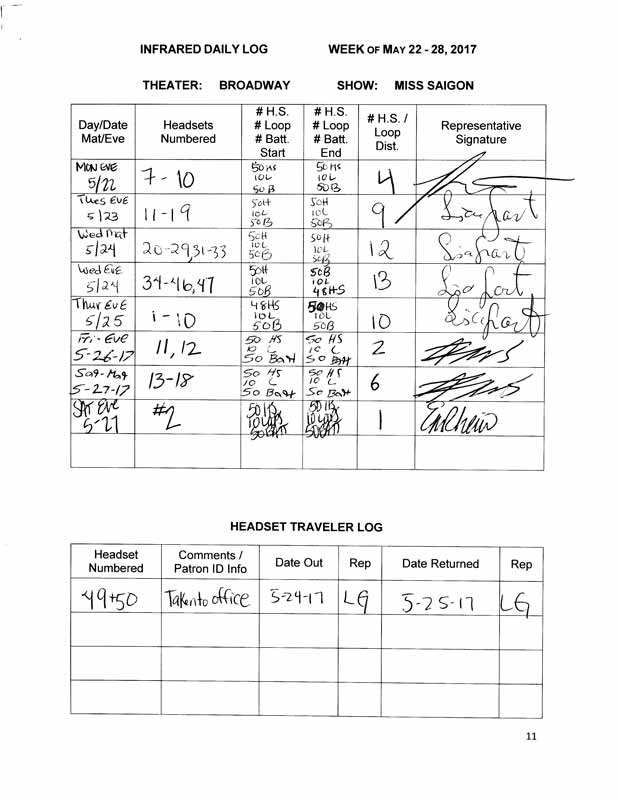 INFRARED DAILY LOG WEEK OF MAY 22 - 28, 2017
THEATER: BROADWAY SHOW: MISS SAIGON
Day/Date Mat/Eve Headsets Numbered # H.S. # Loop # Batt. Start # H.S. # Loop # Batt. End # H.S. / Loop Dist. Representative Signature
MON EVE 5/22 7-10 50HS 10L 50B 50HS 10L 50B 4
Tues EVE 5/23 11-19 50H 10L 50B 50H 10L 50B 9
Wed Mat 5/24 20-29,31-33 50H 10L 50B 50H 10L 50B 12
Wed EvE 5/24 34-46,47 50H 10L 50B 50B 10L 48HS 13
Thur EvE 5/25 1-10 48HS 10L 50B 50HS 10L 50B 10
Fri- EVE 5-26-17 11,12 50 HS 10 L 50 Batt 50 HS 10 L 50 Batt 2
5-27-17 13-18 50 HS 10 L 50 Batt 50 HS 10 L 50 Batt 6
Sat Eve 5-27 #2 1
HEADSET TRAVELER LOG
Headset Numbered Comments / Patron ID Info Date Out Rep Date Returned Rep
49+50 Taken to office 5-24-17 LG 5-25-17 LG
11